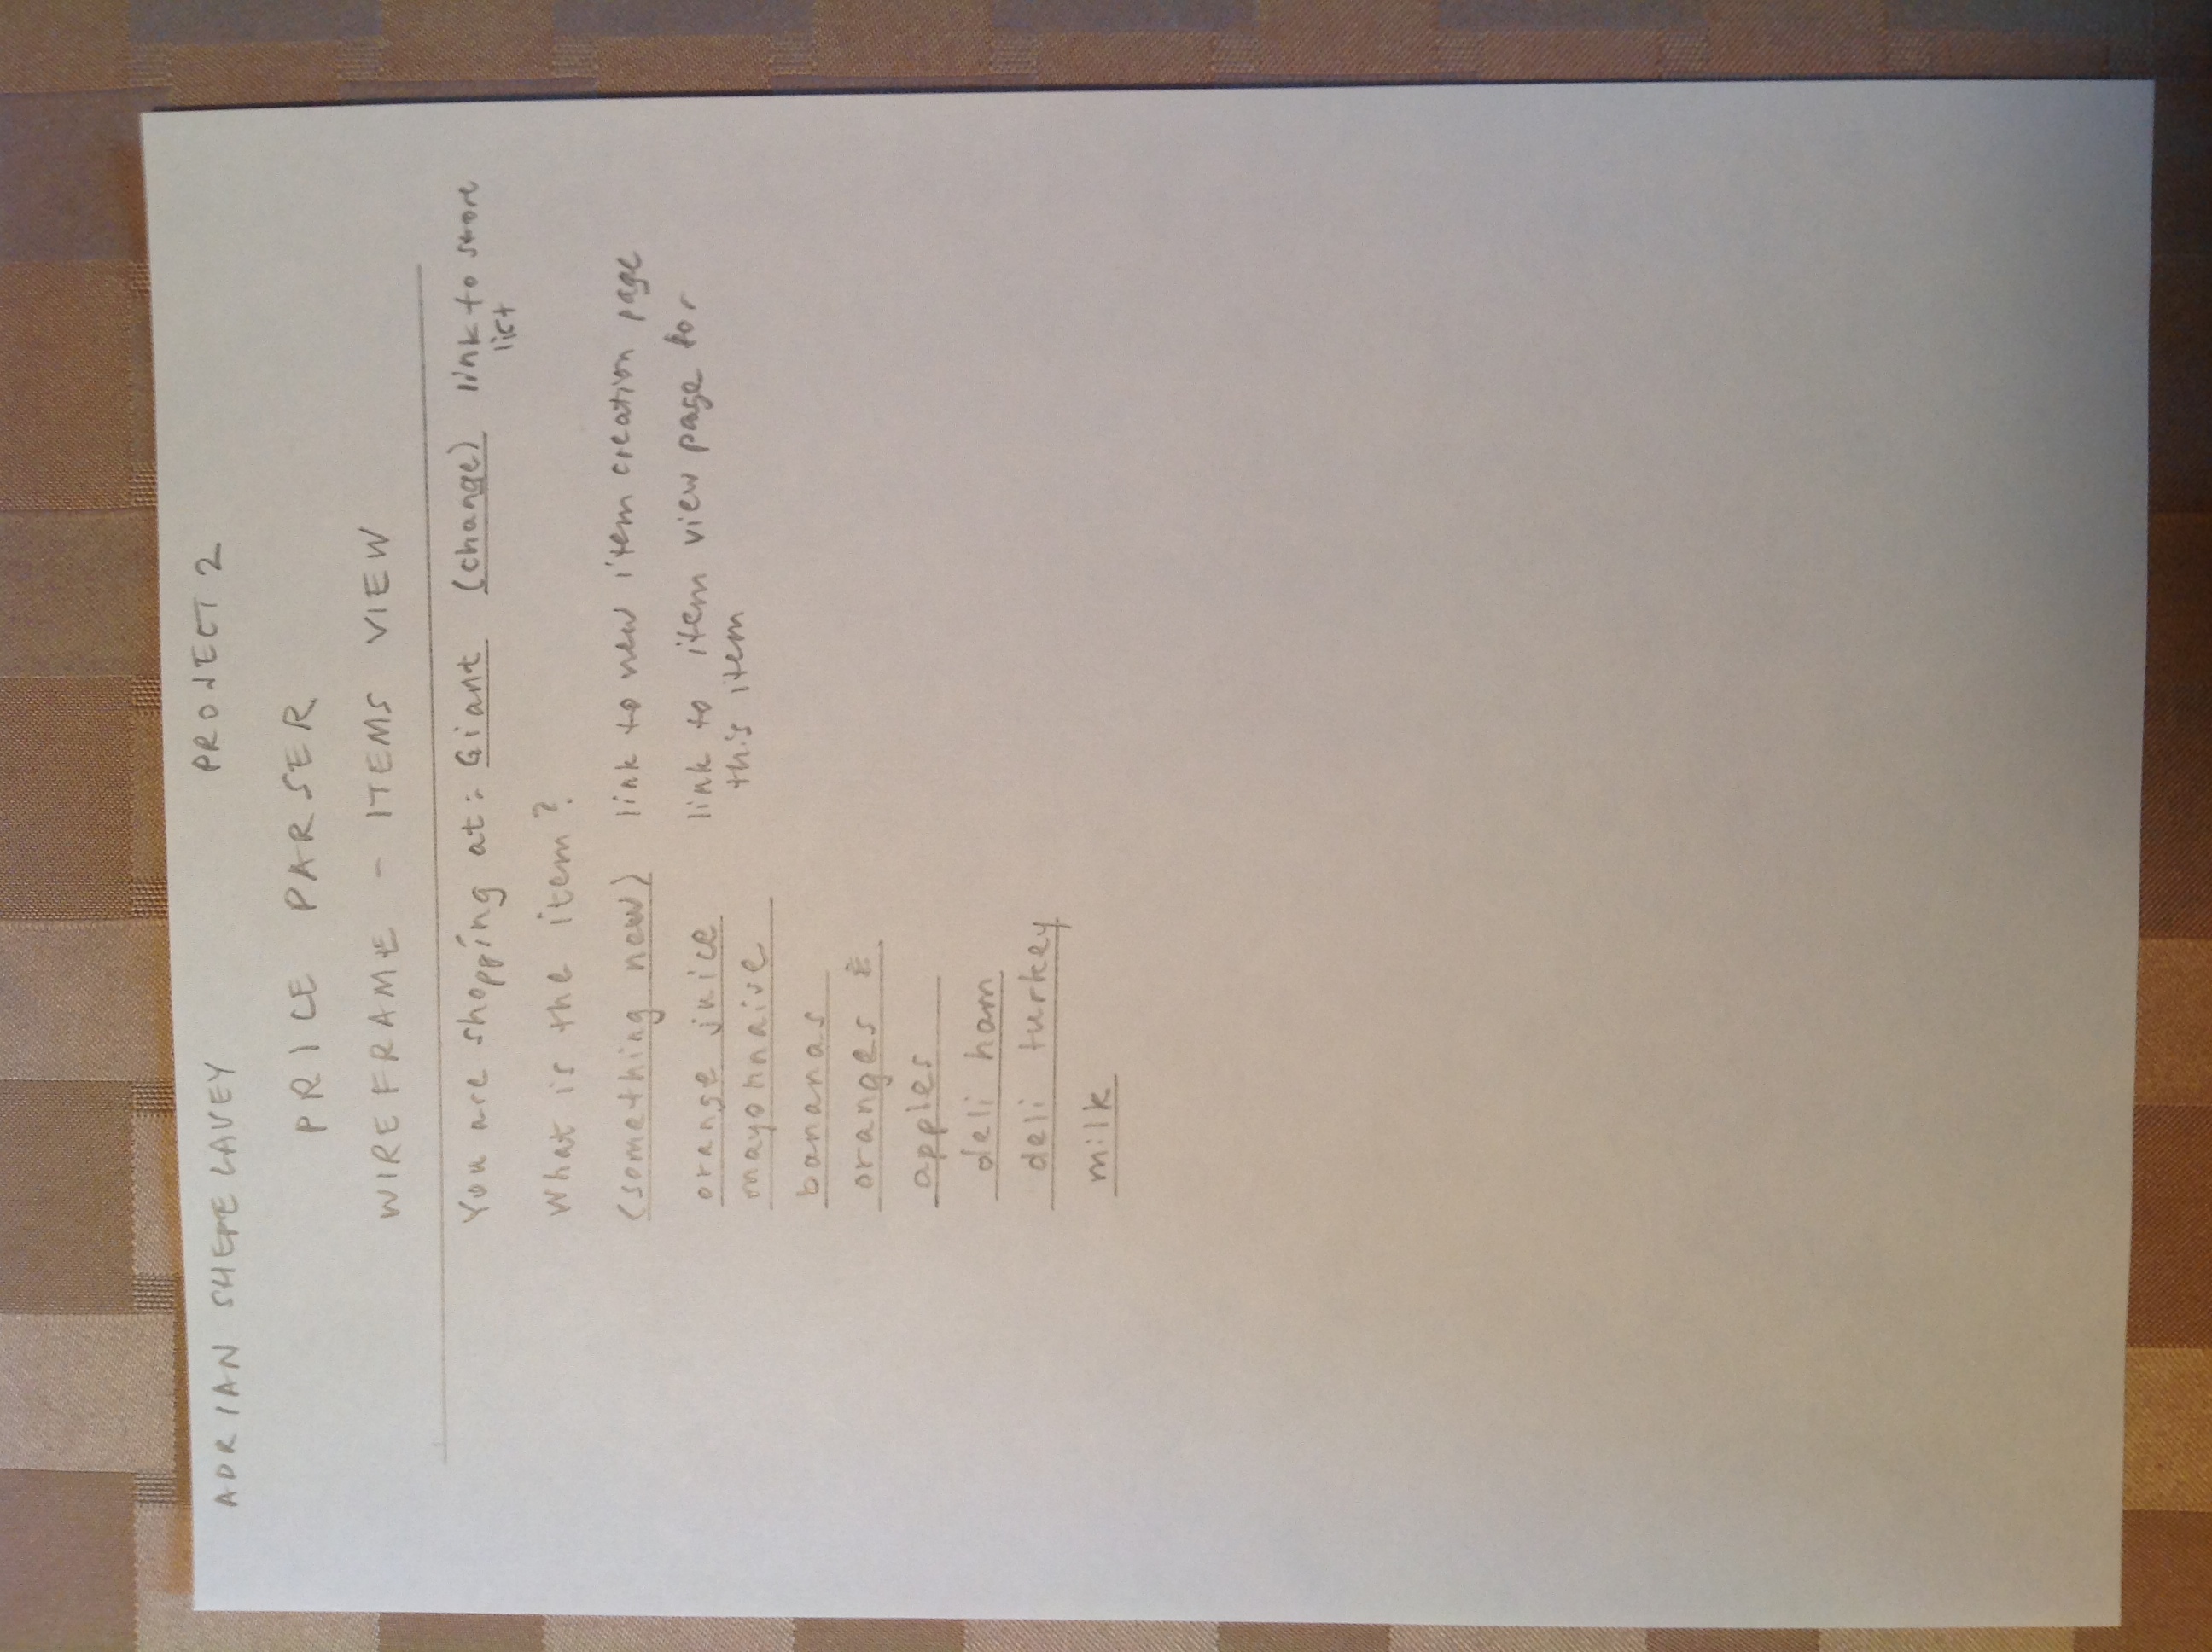 ADRIAN SHEPELAVEY PROJECT 2
PRICE PARSER
WIREFRAME - ITEMS VIEW
You are shopping at: Giant (change) link to store
list
What is the item?
(something new) link to new item creation page
orange juice link to item view page for
this item
mayonnaise
bananas
oranges
apples
deli ham
deli turkey
milk